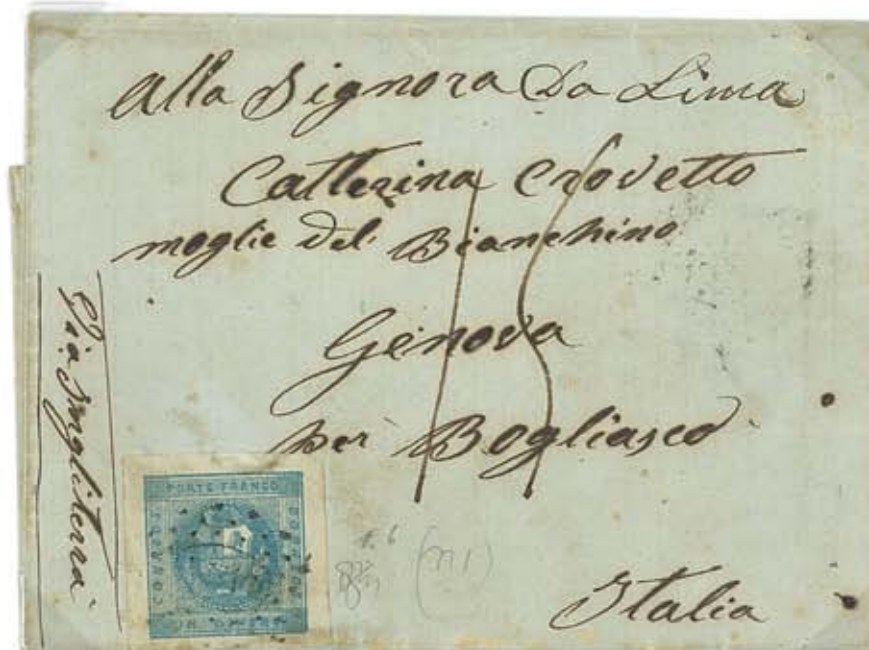 Alla Signora Da Lima
Catterina Crovetto
moglie del Bianchino
Genova
per Bogliasco
Italia
Via Inghilterra
15
PORTE FRANCO
CORREOS
UN DINERO
(n 1)